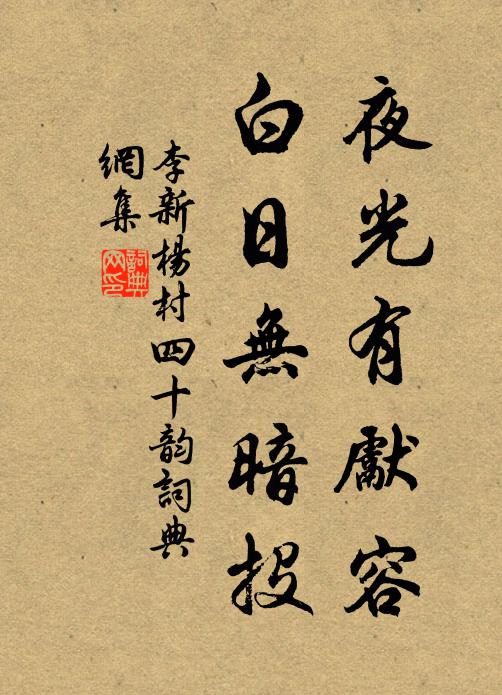 夜光有獻容
白日無暗投
李新楊村四十韵詞典
網集
詞典
网印